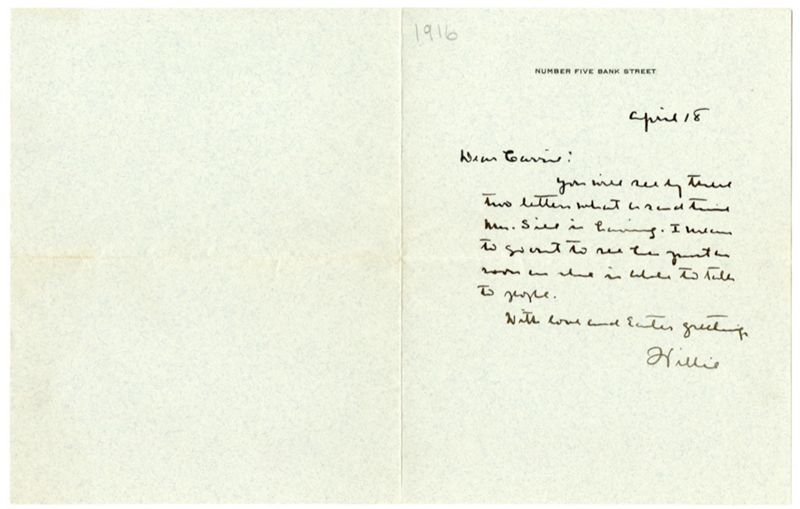 1916
NUMBER FIVE BANK STREET
April 18
Dear Carrie:
You will see by these
two letters what a sad time
Mrs. Sill is having. I mean
to go out to see her just as
soon as she is able to talk
to people.
With love and Easter greetings
Willie